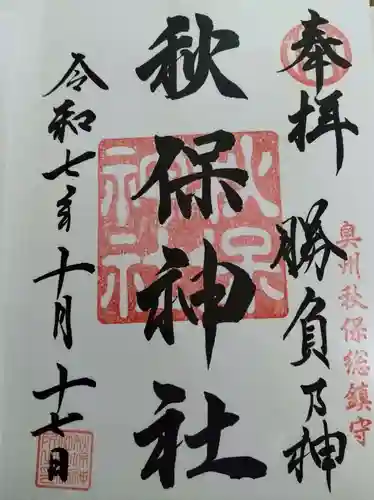 奉拝
勝負乃神
奥州秋保総鎮守
秋保神社
秋保神社
令和七年十月十七日